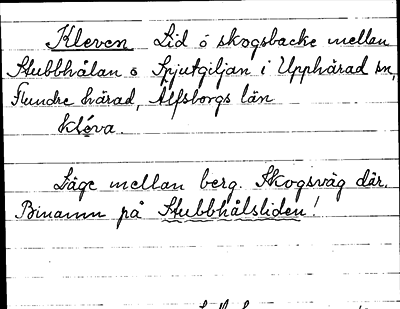 Kleven Lid o skogsbacke mellan
Stubbhålan o Spjutgiljan i Upphärad sn,
Flundre härad, Älfsborgs län
kléva.
Läge mellan berg. Skogsväg där.
Binamn på Stubbhålsliden!